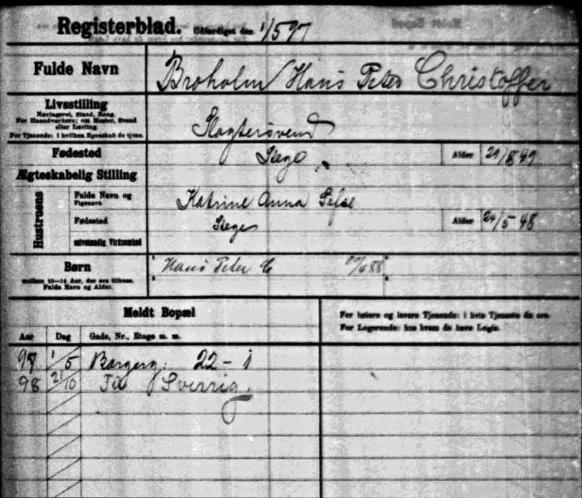 Registerblad. Udfærdiget den 1/5 97
Fulde Navn Broholm Hans Peter Christoffer
Livsstilling
Næringsvei, Stand, Rang.
For Haandværkere; om Mester, Svend
eller Lærling.
For Tjenende: i hvilken Egenskab de tjene.
Slagtersvend
Fødested Stege Alder
Ægteskabelig Stilling
Hustruens
Fulde Navn og
Pigenavn
Katrine Anna
Fødested Stege Alder 24/5 48
selvstændig Virksomhed
Børn
mellem 10-14 Aar, der ere tilhuse.
Fulde Navn og Alder.
Hans Peter C
Meldt Bopæl
For høiere og lavere Tjenende: i hvis Tjeneste de ere.
For Logerende: hos hvem de have Logis.
Aar Dag Gade, Nr., Etage m. m.
97 1/5 Borgerg. 22 - 1
98 21/10 Til Sverrig.